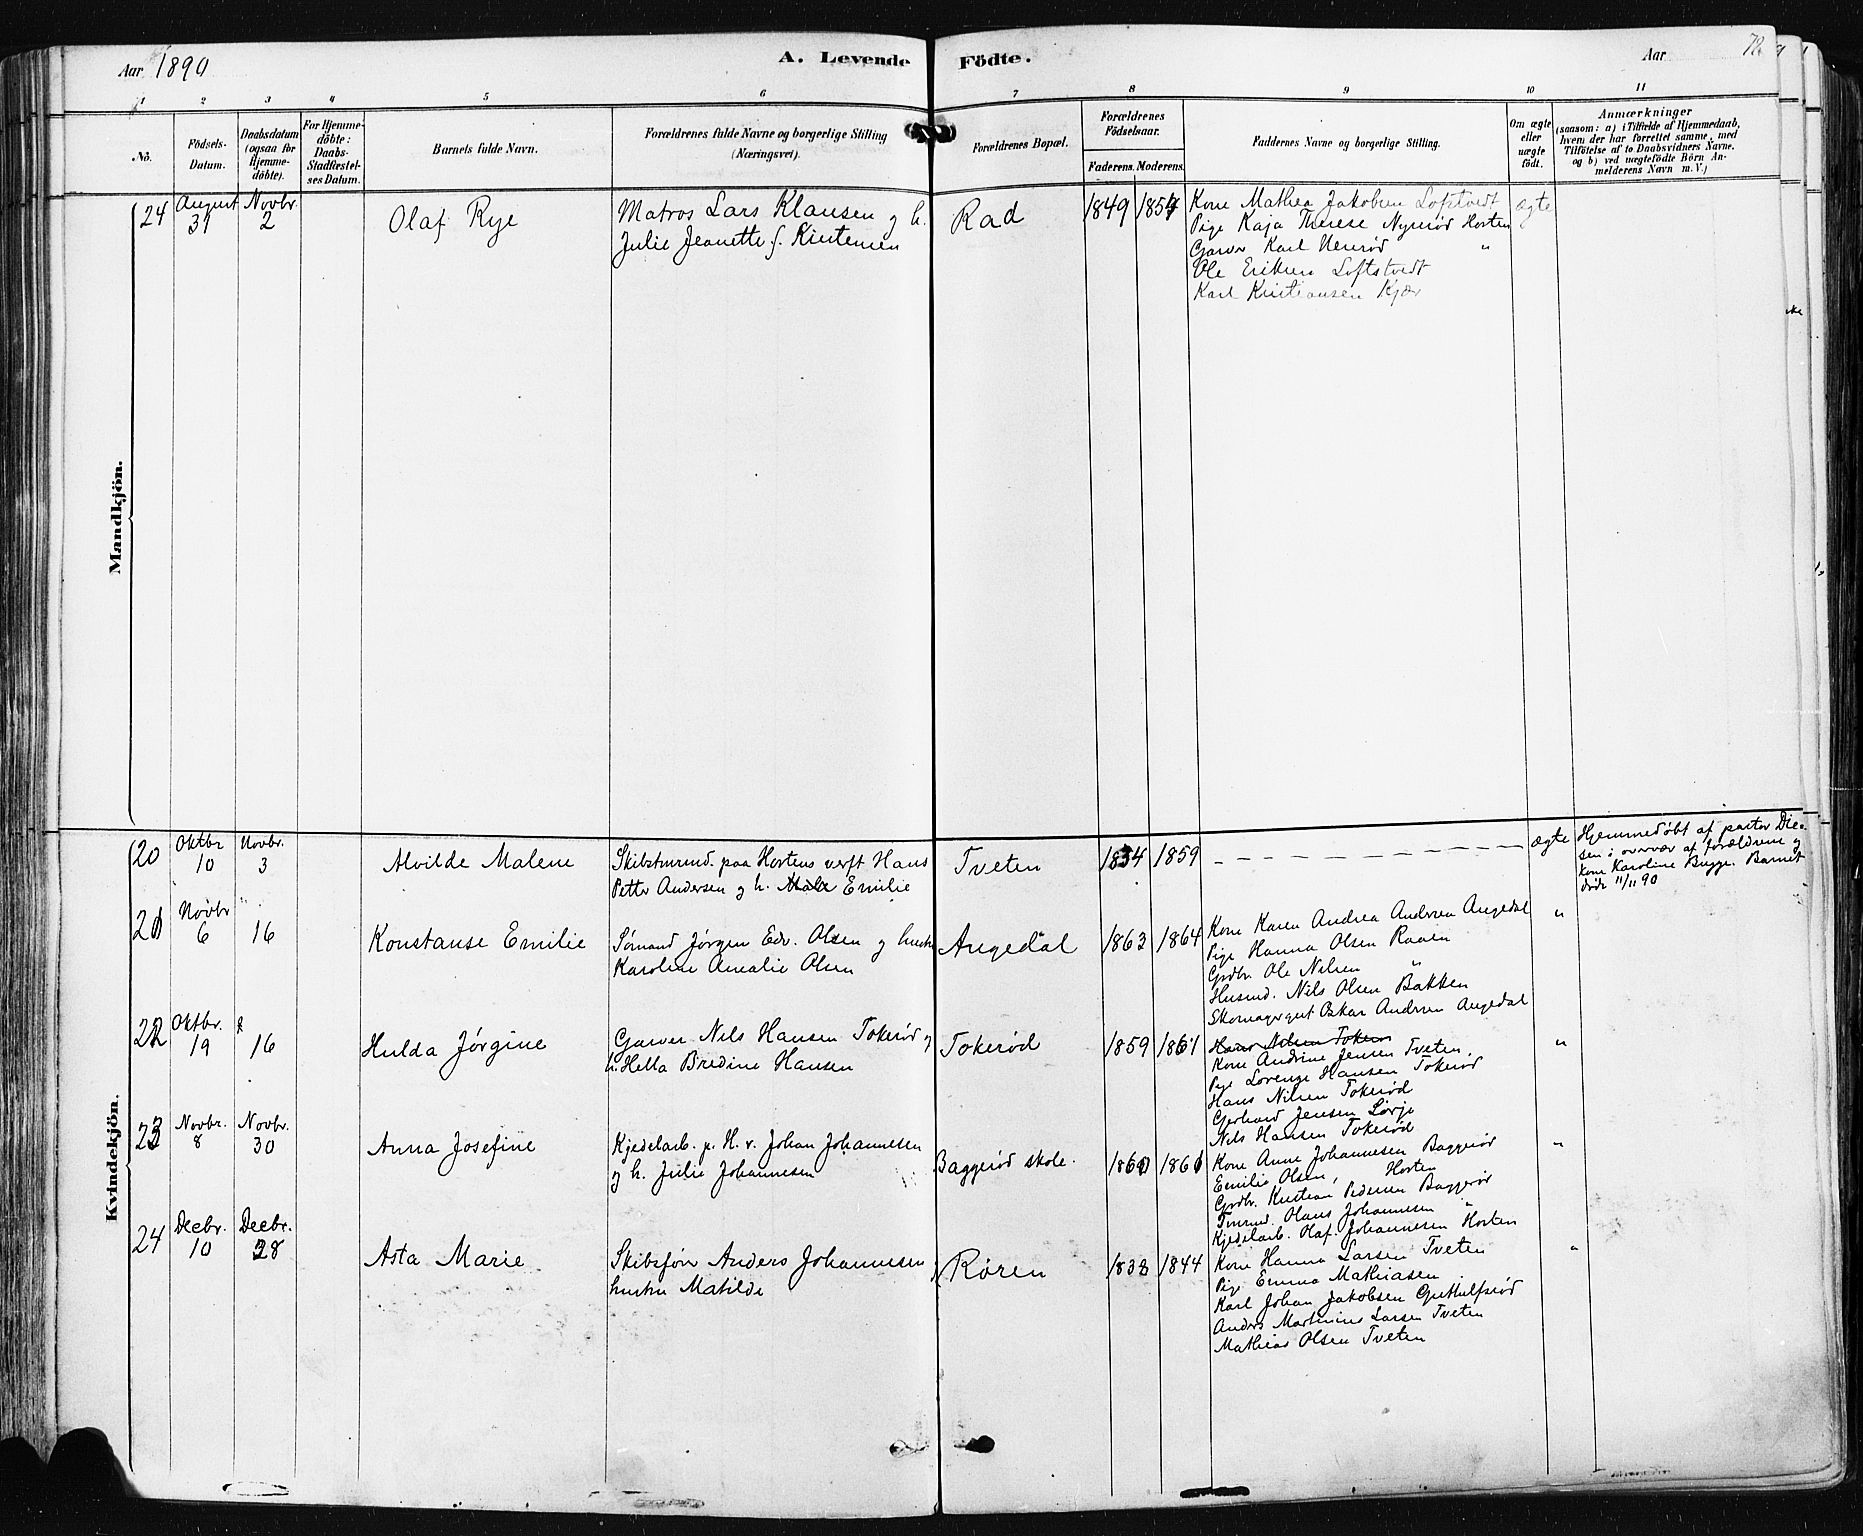 Aar 1890
A. Levende Födte.
Aar
78
1 2 3 4 5 6 7 8 9 10 11
No.
Födsels-
Datum.
Daabsdatum
(ogsaa for
Hjemme-
döbte).
For Hjemme-
döbte:
Daabs-
Stadfæstel-
ses Datum.
Barnets fulde Navn.
Forældrenes fulde Navne og borgerlige Stilling
(Næringsvei).
Forældrenes Bopæl.
Forældrenes
Födselsaar.
Faderens. Moderens.
Faddernes Navne og borgerlige Stilling.
Om ægte
eller
uægte
födt.
Anmærkninger
(saasom: a) i Tilfælde af Hjemmedaab,
hvem der har forrettet samme, med
Tilföielse af to Daabsvidners Navne,
og b) ved uægtefödte Börn An-
melderens Navn m. V.)
Mandkjön.
24
August
31
Novbr.
2
Olaf Rye
Matros Lars Klausen og h.
Julie Jeanette f. Kristensen
Rad
1849 1854
Kone Mathea Jakobsen Loftstvedt
Pige Kaja Therese Nyrerød Horten
Garver Karl "
Ole Eriksen Loftstvedt
Karl Kristiansen Kjær
ægte
Kvindekjön.
20
Oktbr
10
Novbr.
3
Alvilde Malene
Skibstmrmd. paa Hortens verft Hans
Petter Andersen og h. Emilie
Tveten
1834 1859
ægte
Hjemmedøbt af pastor Die-
sen i overvær af forældrene og
kone Karoline Bugge. Barnet
døde 11/11 90
21
Novbr
6
16
Konstanse Emilie
Sømand Jørgen Edv. Olsen og hustru
Karoline Amalie Olsen
Angedal
1863 1864
Kone Karen Andrea Andersen Angedal
Pige Hanna Olsen Raaen
Grdbr. Ole Nilsen "
Husmd. Nils Olsen Bakken
Skomagergut Oskar Andersen Angedal
"
22
Oktbr.
19
16
Hulda Jørgine
Garver Nils Hansen Tokerød og
h. Hella Bredine Hansen
Tokerød
1859 1861
Hans Nilsen Tokerø
Kone Andrine Jensen Tveten
Pige Lorenze Hansen Tokerød
Hans Nilsen Tokerød
Gerhard Jensen Sørje
Nils Hansen Tokerød
"
23
Novbr.
8
Novbr.
30
Anna Josefine
Kjedelarb. p. H. v. Johan Johannesen
og h. Julie Johannesen
Baggerød skole.
1860 1861
Kone Anne Johannesen Baggerød
Emilie Olsen, Horten
Grdbr. Kristian Pedersen Baggerød
Tmrmd. Olaus Johannesen "
Kjedelarb. Olaf Johannesen Horten
"
24
Decbr.
10
Decbr.
28
Asta Marie
Skibsfør Anders Johannesen
hustru Matilde
Røren
1838 1844
Kone Hanna Larsen Tveten
Pige Emma Mathiasen
Karl Johan Jakobsen
Anders Martinius Larsen Tveten
Mathias Olsen Tveten
"